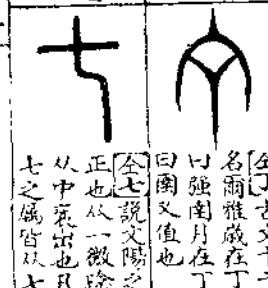 仝丁古文丁十
名爾雅歲在丁
曰強圉月在丁
曰圉又值也
仝七說文陽之
正也从一微陰
从中衺出也凡
七之屬皆从七